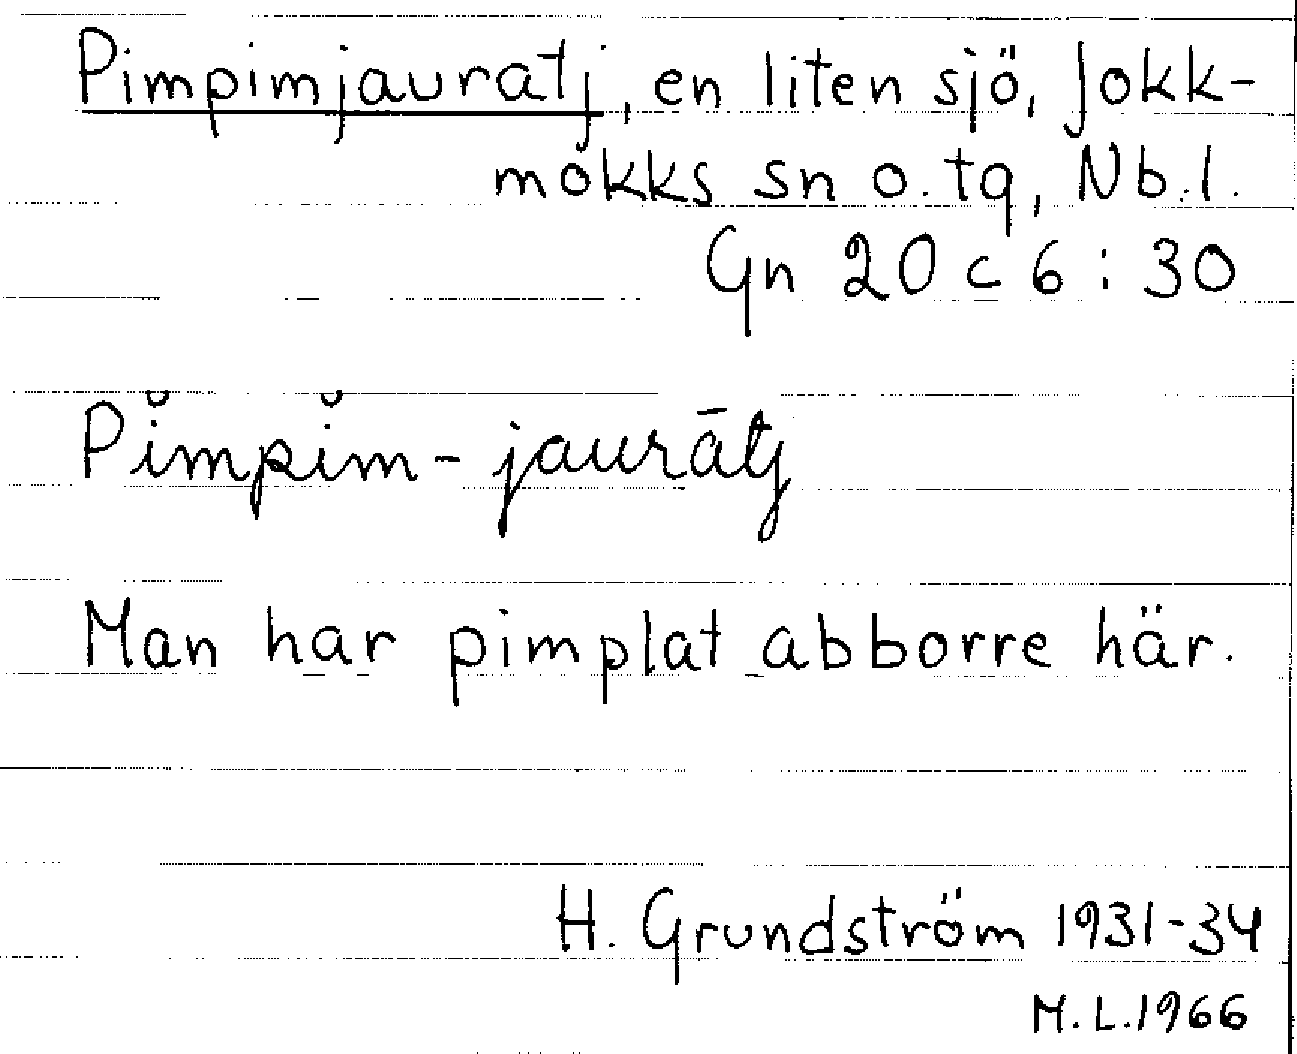 Pimpimjauratj, en liten sjö, Jokk-
mokks sn o. tg, Nb. l.
Gn 20 c 6 : 30
Pĭmpĭm-jaurātj
Man har pimplat abborre här.
H. Grundström 1931-34
M.L.1966